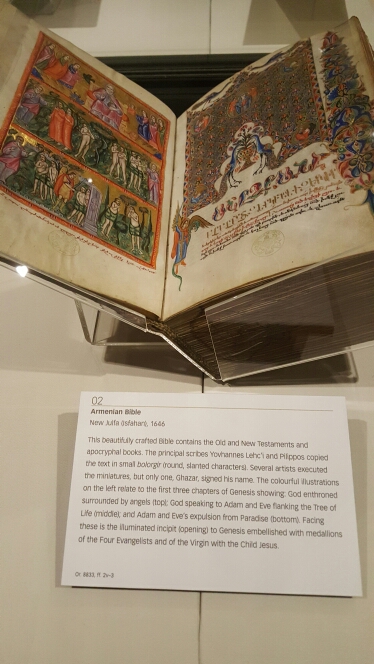 02
Armenian Bible
New Julfa (Isfahan), 1646
This beautifully crafted Bible contains the Old and New Testaments and
apocryphal books. The principal scribes Yovhannes Lehc'i and Pilippos copied
the text in small bolorgir (round, slanted characters). Several artists executed
the miniatures, but only one, Ghazar, signed his name. The colourful illustrations
on the left relate to the first three chapters of Genesis showing: God enthroned
surrounded by angels (top); God speaking to Adam and Eve flanking the Tree of
Life (middle); and Adam and Eve's expulsion from Paradise (bottom). Facing
these is the illuminated incipit (opening) to Genesis embellished with medallions
of the Four Evangelists and of the Virgin with the Child Jesus.
Or. 8833, ff. 2v–3